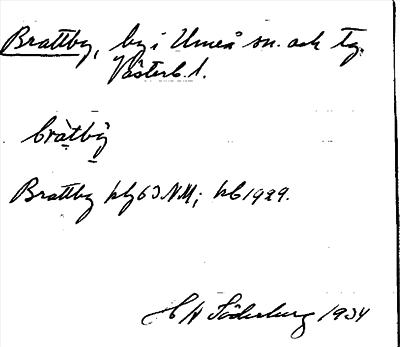 Brattby, by i Umeå sn. och tg.
Västerb. l.
bràtbý̀
Brattby hfl 63 NM; hb 1929.
H Söderberg 1934